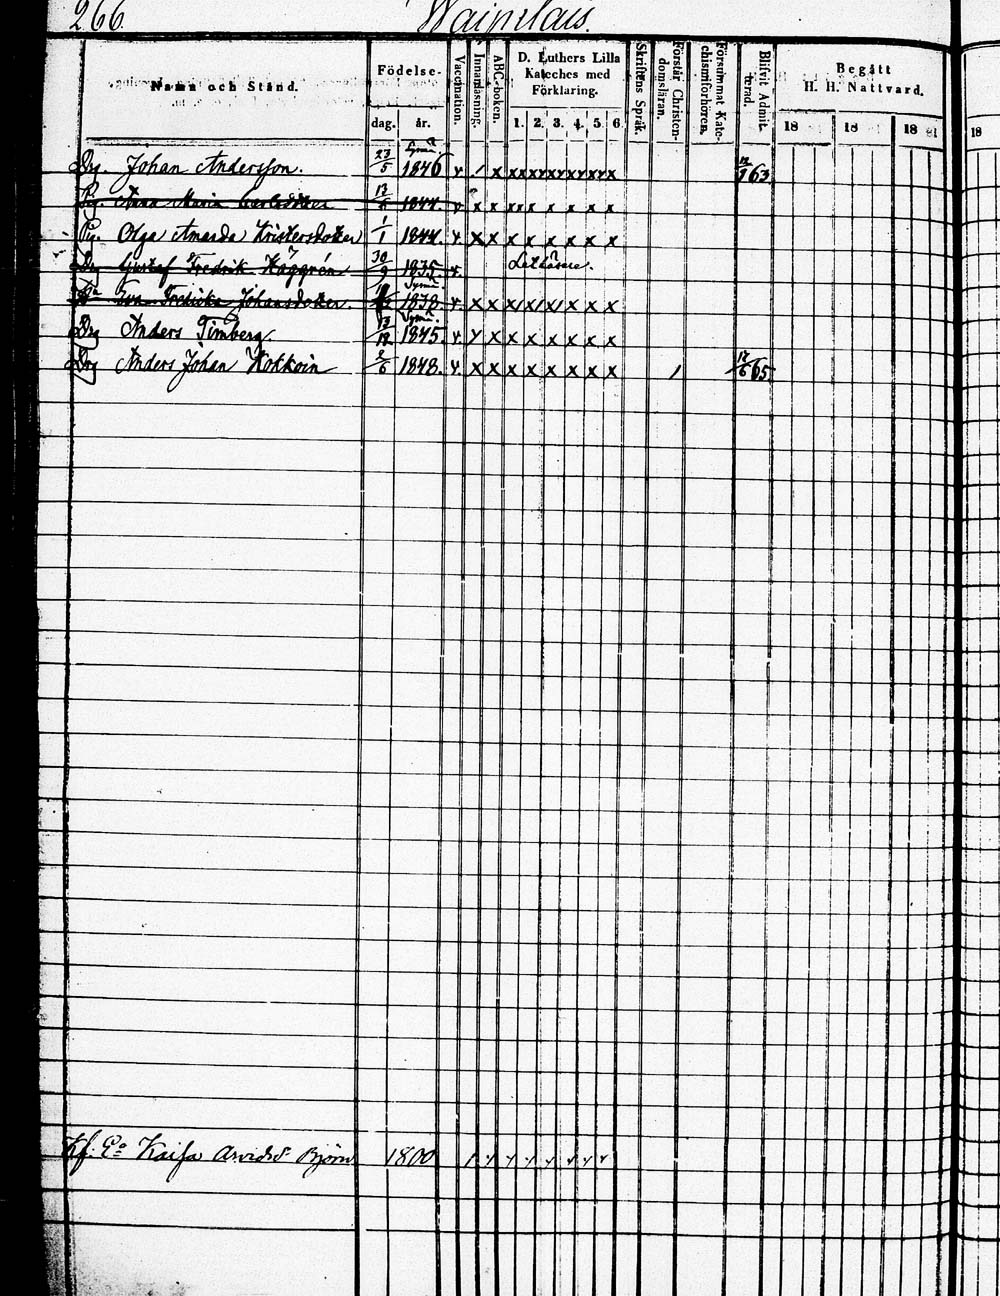 266. Wainilais.
Namn och Stånd. Födelse- dag. år. Vaccination. Innanläsning. ABC-boken. D. Luthers Lilla Kateches med Förklaring. 1. 2. 3. 4. 5. 6. Skriftens Språk. Förstår Christendomsläran. Försummat Katechismiförhören. Blifvit Admitterad. Begått H. H. Nattvard. 18 18 18 81 18
Drg. Johan Andersson. 23/5 1846 x / x x x x x x x x x x x x 63
Pig. Anna Maria 13 1844. x x x x x x x x x
Pig. Olga Amanda Kristersdotter 1/1 1844. x x x x x x x x x
Drg Gustaf Fredrik Häggrén 30/9 1835. x.
Eva Fredrika Johansdotter. 1838 x x x x x x x x x
Drg Anders Timberg. 13/12 1845. x x x x x x x x x
Drg Anders Johan Kokkoin 2/6 1848. x. x x x x x x x x / 17/6 65.
Kf. Eª Kaisa Arvidsd. Björn 1800